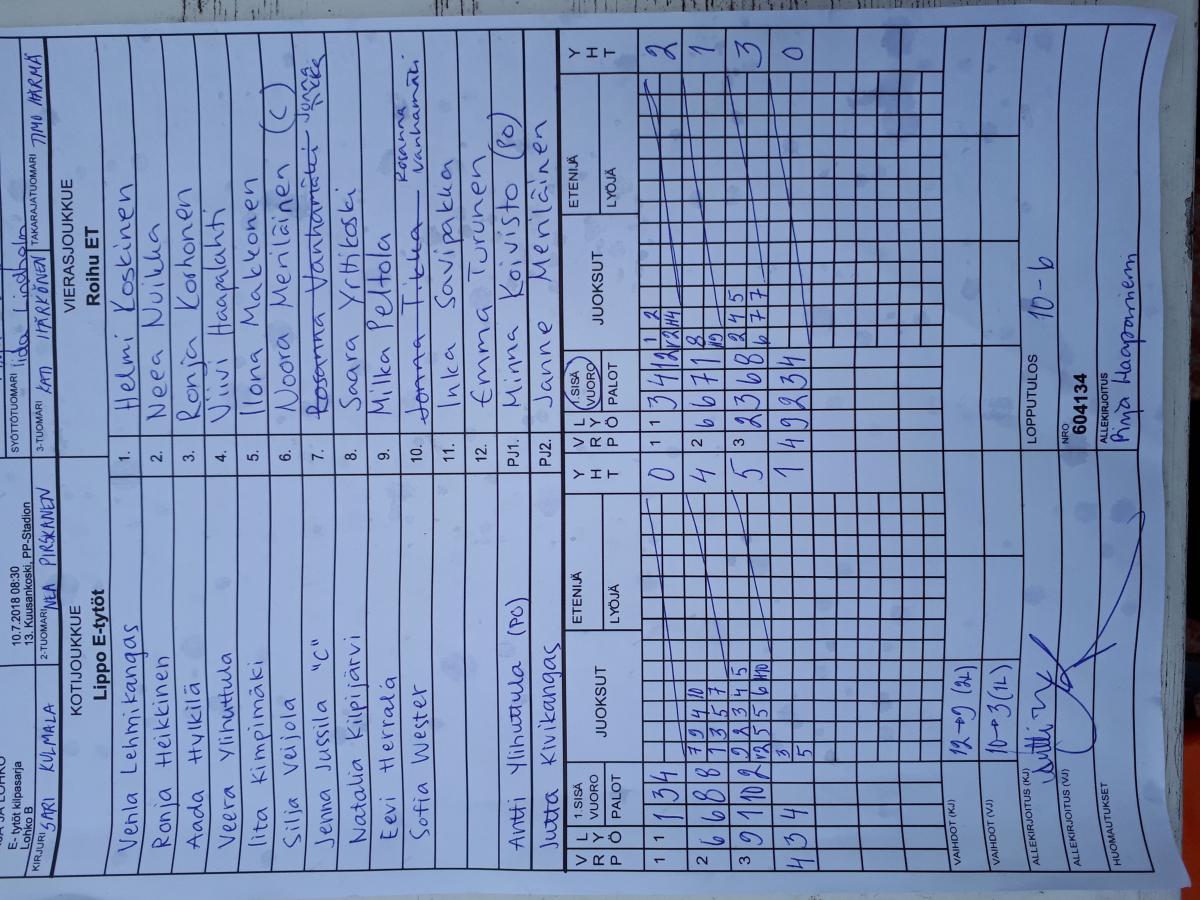 E- tytöt kilpasarja
Lohko B
10.7.2018 08:30
13. Kuusankoski, PP-Stadion
SYÖTTÖTUOMARI Iida Lindholm
KIRJURI SARI KULMALA
2-TUOMARI NEA PIRSKANEN
3-TUOMARI KATI HÄRKÖNEN
TAKARAJATUOMARI TIMO HÄRMÄ
KOTIJOUKKUE
Lippo E-tytöt
VIERASJOUKKUE
Roihu ET
Venla Lehmikangas 1. Helmi Koskinen
Ronja Heikkinen 2. Neea Nuikka
Aada Hylkilä 3. Ronja Korhonen
Veera Ylihuttula 4. Viivi Haapalahti
Iita Kimpimäki 5. Ilona Makkonen
Silja Veijola 6. Noora Meriläinen (C)
Jenna Jussila "C" 7. Rosanna Vanhamäki Jonna Tikka
Natalia Kilpijärvi 8. Saara Yrttikoski
Eevi Herrala 9. Milka Peltola
Sofia Wester 10. Jonna Tikka Rosanna Vanhamäki
11. Inka Savipakka
12. Emma Turunen
Antti Ylihuttula (PO) PJ1. Minna Koivisto (PO)
Jutta Kivikangas PJ2. Janne Meriläinen
V R P L Y Ö 1.SISÄ VUORO PALOT JUOKSUT ETENIJÄ LYÖJÄ Y H T V R P L Y Ö 1.SISÄ VUORO PALOT JUOKSUT ETENIJÄ LYÖJÄ Y H T
1 1 1 3 4 0 1 1 3 4 12 1 2 2
V2 H4
2 6 6 8 8 7 9 4 10 4 2 6 6 7 1 8 1
1 3 5 7 H9
3 9 1 10 2 2 2 3 4 5 5 3 2 3 6 8 2 4 5 3
V2 5 5 6 H10 6 7 7
4 3 4 3 1 4 9 2 3 4 0
5
VAIHDOT (KJ) 12→9 (2L)
VAIHDOT (VJ) 10→3 (1L)
ALLEKIRJOITUS (KJ)
LOPPUTULOS 10-6
ALLEKIRJOITUS (VJ)
NRO
604134
HUOMAUTUKSET
ALLEKIRJOITUS
Pinja Haapaniemi